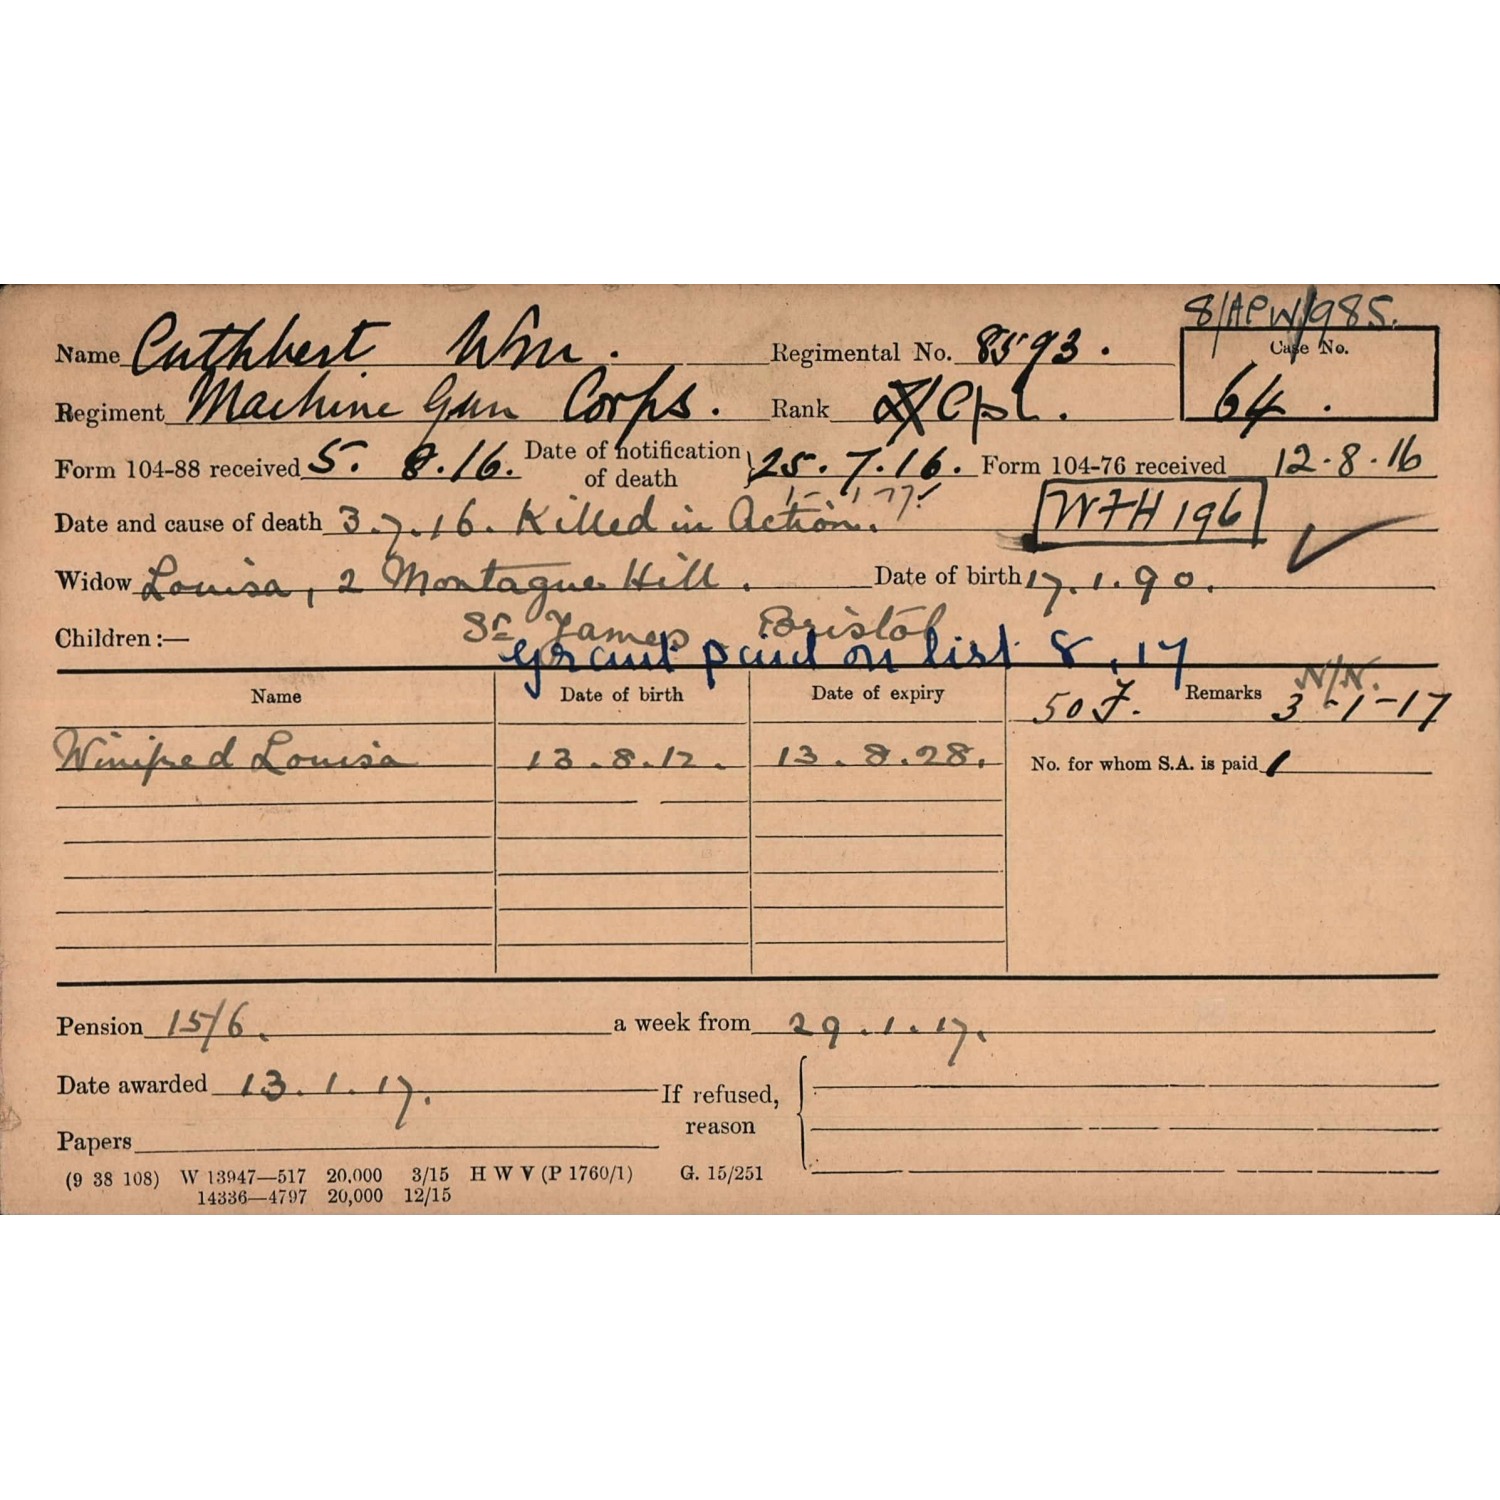 8/APW/985.
Name Cuthbert Wm. Regimental No. 8593. Case No.
Regiment Machine Gun Corps. Rank Cpl. 64.
Form 104-88 received 5. 8.16. Date of notification of death 25.7.16. Form 104-76 received 12.8.16
1-1-17.
Date and cause of death 3.7.16. Killed in Action. WFH 196
Widow Louisa, 2 Montague Hill. Date of birth 17.1.90.
Children:— St James Bristol
Grant paid on list 8.17
N/N.
Name Date of birth Date of expiry 50 F. Remarks 3-1-17
Winifred Louisa 13.8.12. 13.8.28. No. for whom S.A. is paid 1
Pension 15/6. a week from 29.1.17.
Date awarded 13.1.17. If refused, reason
Papers
(9 38 108) W 13947—517 20,000 3/15 H W V (P 1760/1) G. 15/251
14336—4797 20,000 12/15